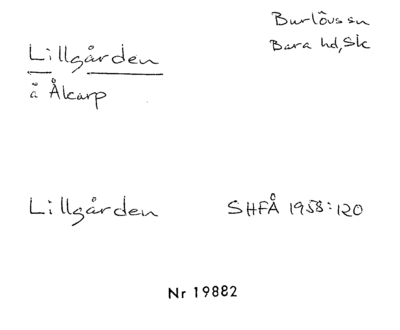 Burlövs sn
Bara hd, Sk
Lillgården
å Åkarp
Lillgården SHFÅ 1958:120
Nr 19882